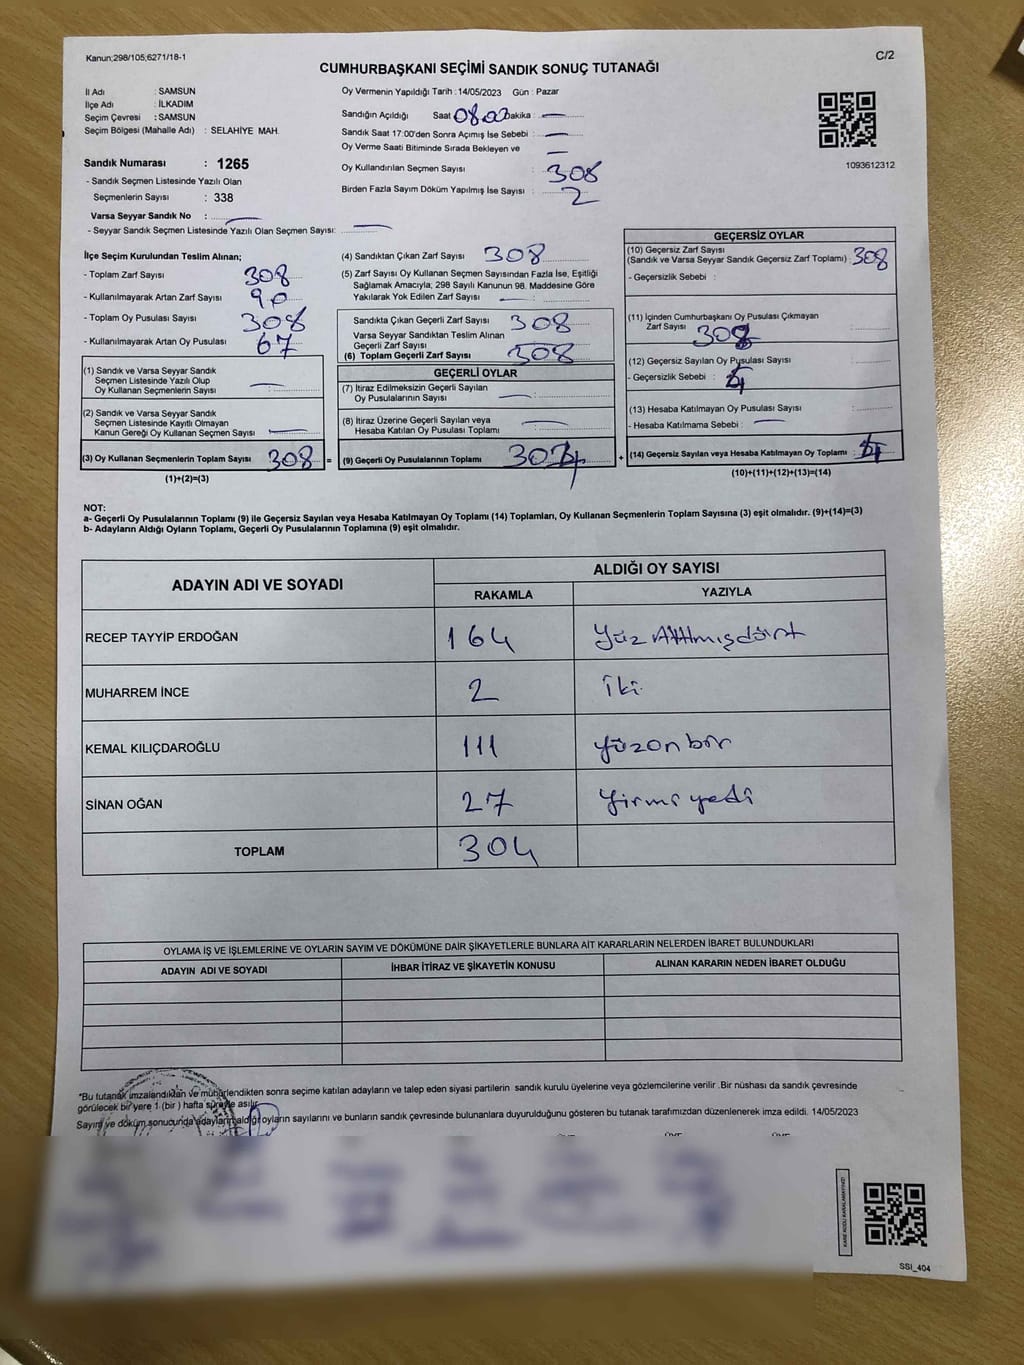 Kanun;298/105;6271/18-1
C/2
CUMHURBAŞKANI SEÇİMİ SANDIK SONUÇ TUTANAĞI
İl Adı : SAMSUN
İlçe Adı : İLKADIM
Seçim Çevresi : SAMSUN
Seçim Bölgesi (Mahalle Adı) : SELAHİYE MAH.
Sandık Numarası : 1265
- Sandık Seçmen Listesinde Yazılı Olan
Seçmenlerin Sayısı : 338
Varsa Seyyar Sandık No :
- Seyyar Sandık Seçmen Listesinde Yazılı Olan Seçmen Sayısı:
Oy Vermenin Yapıldığı Tarih : 14/05/2023 Gün : Pazar
Sandığın Açıldığı Saat Dakika :
Sandık Saat 17:00'den Sonra Açımış İse Sebebi :
Oy Verme Saati Bitiminde Sırada Bekleyen ve
Oy Kullandırılan Seçmen Sayısı : 308
Birden Fazla Sayım Döküm Yapılmış İse Sayısı : 2
1093612312
İlçe Seçim Kurulundan Teslim Alınan;
- Toplam Zarf Sayısı 308
- Kullanılmayarak Artan Zarf Sayısı 90
- Toplam Oy Pusulası Sayısı 308
- Kullanılmayarak Artan Oy Pusulası 67
(1) Sandık ve Varsa Seyyar Sandık
Seçmen Listesinde Yazılı Olup
Oy Kullanan Seçmenlerin Sayısı :
(2) Sandık ve Varsa Seyyar Sandık
Seçmen Listesinde Kayıtlı Olmayan
Kanun Gereği Oy Kullanan Seçmen Sayısı :
(3) Oy Kullanan Seçmenlerin Toplam Sayısı 308 =
(1)+(2)=(3)
(4) Sandıktan Çıkan Zarf Sayısı 308
(5) Zarf Sayısı Oy Kullanan Seçmen Sayısından Fazla İse, Eşitliği
Sağlamak Amacıyla; 298 Sayılı Kanunun 98. Maddesine Göre
Yakılarak Yok Edilen Zarf Sayısı :
Sandıkta Çıkan Geçerli Zarf Sayısı 308
Varsa Seyyar Sandıktan Teslim Alınan
Geçerli Zarf Sayısı
(6) Toplam Geçerli Zarf Sayısı 308
GEÇERLİ OYLAR
(7) İtiraz Edilmeksizin Geçerli Sayılan
Oy Pusulalarının Sayısı :
(8) İtiraz Üzerine Geçerli Sayılan veya
Hesaba Katılan Oy Pusulası Toplamı :
(9) Geçerli Oy Pusulalarının Toplamı +
GEÇERSİZ OYLAR
(10) Geçersiz Zarf Sayısı
(Sandık ve Varsa Seyyar Sandık Geçersiz Zarf Toplamı) : 308
- Geçersizlik Sebebi :
(11) İçinden Cumhurbaşkanı Oy Pusulası Çıkmayan
Zarf Sayısı :
(12) Geçersiz Sayılan Oy Pusulası Sayısı :
- Geçersizlik Sebebi :
(13) Hesaba Katılmayan Oy Pusulası Sayısı :
- Hesaba Katılmama Sebebi :
(14) Geçersiz Sayılan veya Hesaba Katılmayan Oy Toplamı :
(10)+(11)+(12)+(13)=(14)
NOT:
a- Geçerli Oy Pusulalarının Toplamı (9) ile Geçersiz Sayılan veya Hesaba Katılmayan Oy Toplamı (14) Toplamları, Oy Kullanan Seçmenlerin Toplam Sayısına (3) eşit olmalıdır. (9)+(14)=(3)
b- Adayların Aldığı Oyların Toplamı, Geçerli Oy Pusulalarının Toplamına (9) eşit olmalıdır.
ADAYIN ADI VE SOYADI
ALDIĞI OY SAYISI
RAKAMLA YAZIYLA
RECEP TAYYİP ERDOĞAN 164 Yüz Altmışdört
MUHARREM İNCE 2 İki
KEMAL KILIÇDAROĞLU 111 yüzonbir
SİNAN OĞAN 27 yirmi yedi
TOPLAM 304
OYLAMA İŞ VE İŞLEMLERİNE VE OYLARIN SAYIM VE DÖKÜMÜNE DAİR ŞİKAYETLERLE BUNLARA AİT KARARLARIN NELERDEN İBARET BULUNDUKLARI
ADAYIN ADI VE SOYADI İHBAR İTİRAZ VE ŞİKAYETİN KONUSU ALINAN KARARIN NEDEN İBARET OLDUĞU
*Bu tutanak imzalandıktan ve mühürlendikten sonra seçime katılan adayların ve talep eden siyasi partilerin sandık kurulu üyelerine veya gözlemcilerine verilir .Bir nüshası da sandık çevresinde
görülecek bir yere 1 (bir ) hafta süreyle asılır.
Sayım ve döküm sonucunda adayların aldığı oyların sayılarını ve bunların sandık çevresinde bulunanlara duyurulduğunu gösteren bu tutanak tarafımızdan düzenlenerek imza edildi. 14/05/2023
SSI_404